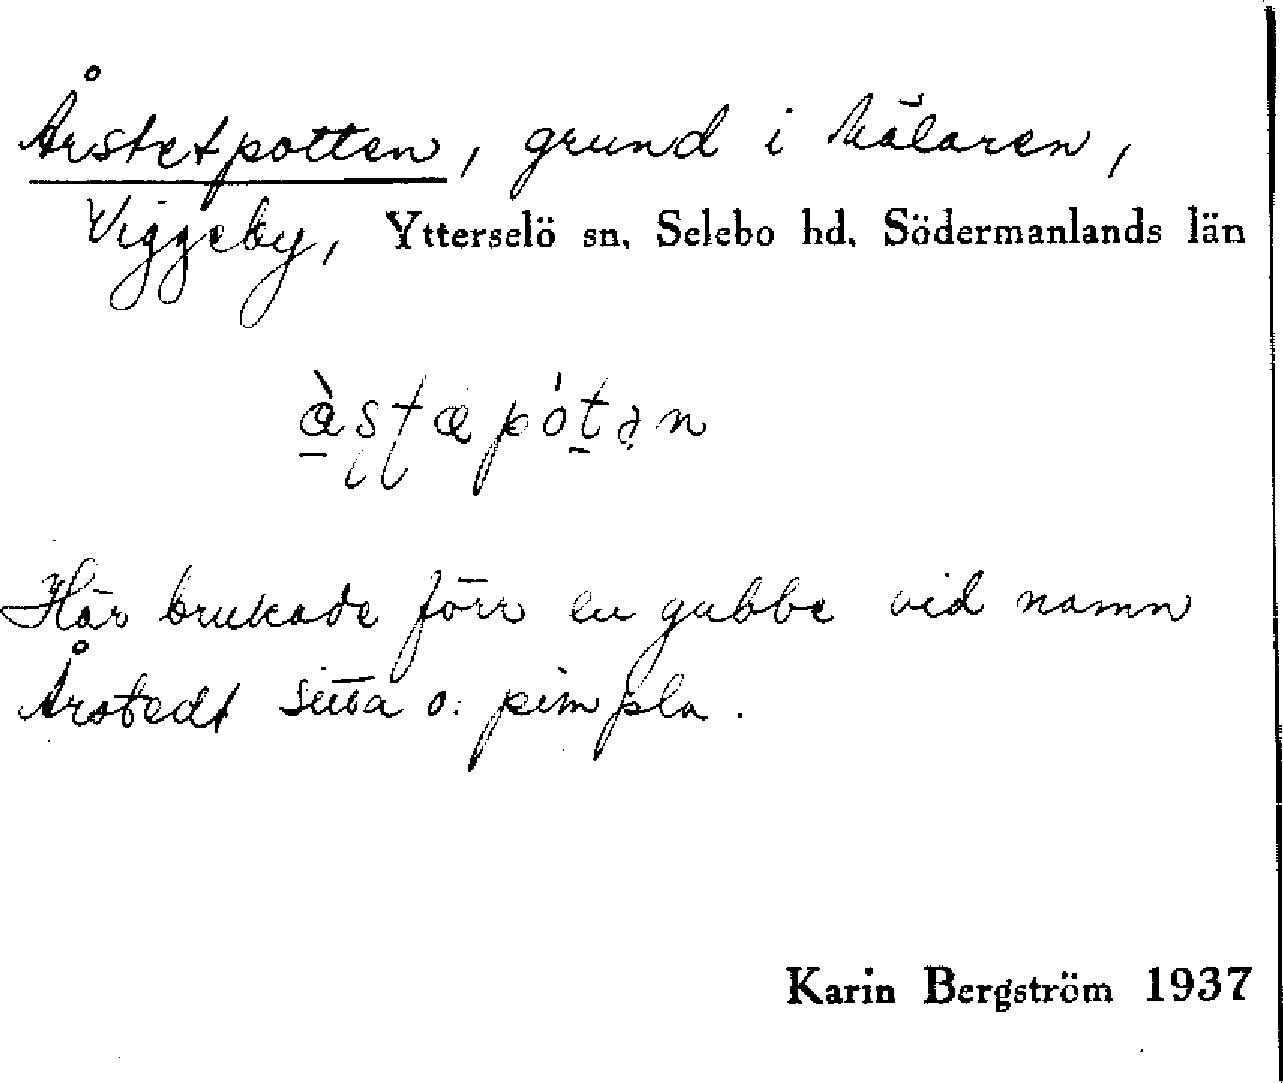 Årstetpotten, grund i Mälaren,
Viggeby, Ytterselö sn. Selebo hd. Södermanlands län
Här brukade förr en gubbe vid namn
Årstedt sitta o. pimpla.
Karin Bergström 1937